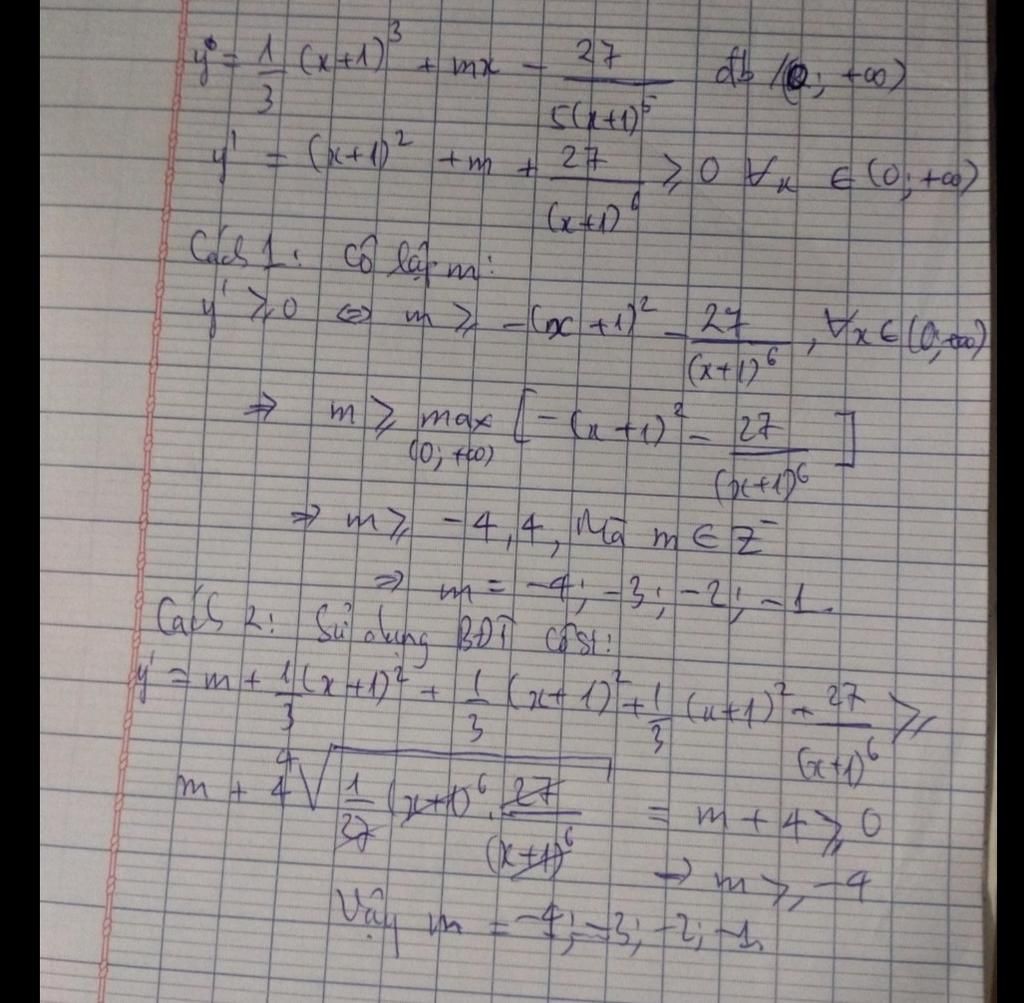 y = 1/3 (x+1)³ + mx - 27/(5(x+1)⁵) đb (0; +∞)
y' = (x+1)² + m + 27/(x+1)⁶ ⩾ 0 ∀x ∈ (0; +∞)
Cách 1: Cô lập m:
y' ⩾ 0 ⇔ m ⩾ -(x+1)² - 27/(x+1)⁶, ∀x ∈ (0; +∞)
⇒ m ⩾ max (0; +∞) [-(x+1)² - 27/(x+1)⁶]
⇒ m ⩾ -4,4, Mà m ∈ Z⁻
⇒ m = -4; -3; -2; -1
Cách 2: Sử dụng BĐT Côsi:
y' = m + 1/3(x+1)² + 1/3 (x+1)² + 1/3 (x+1)² + 27/(x+1)⁶ ⩾
m + 4 ⁴√(1/27 (x+1)⁶ . 27/(x+1)⁶) = m + 4 ⩾ 0
→ m ⩾ -4
Vậy m = -4; -3; -2; -1